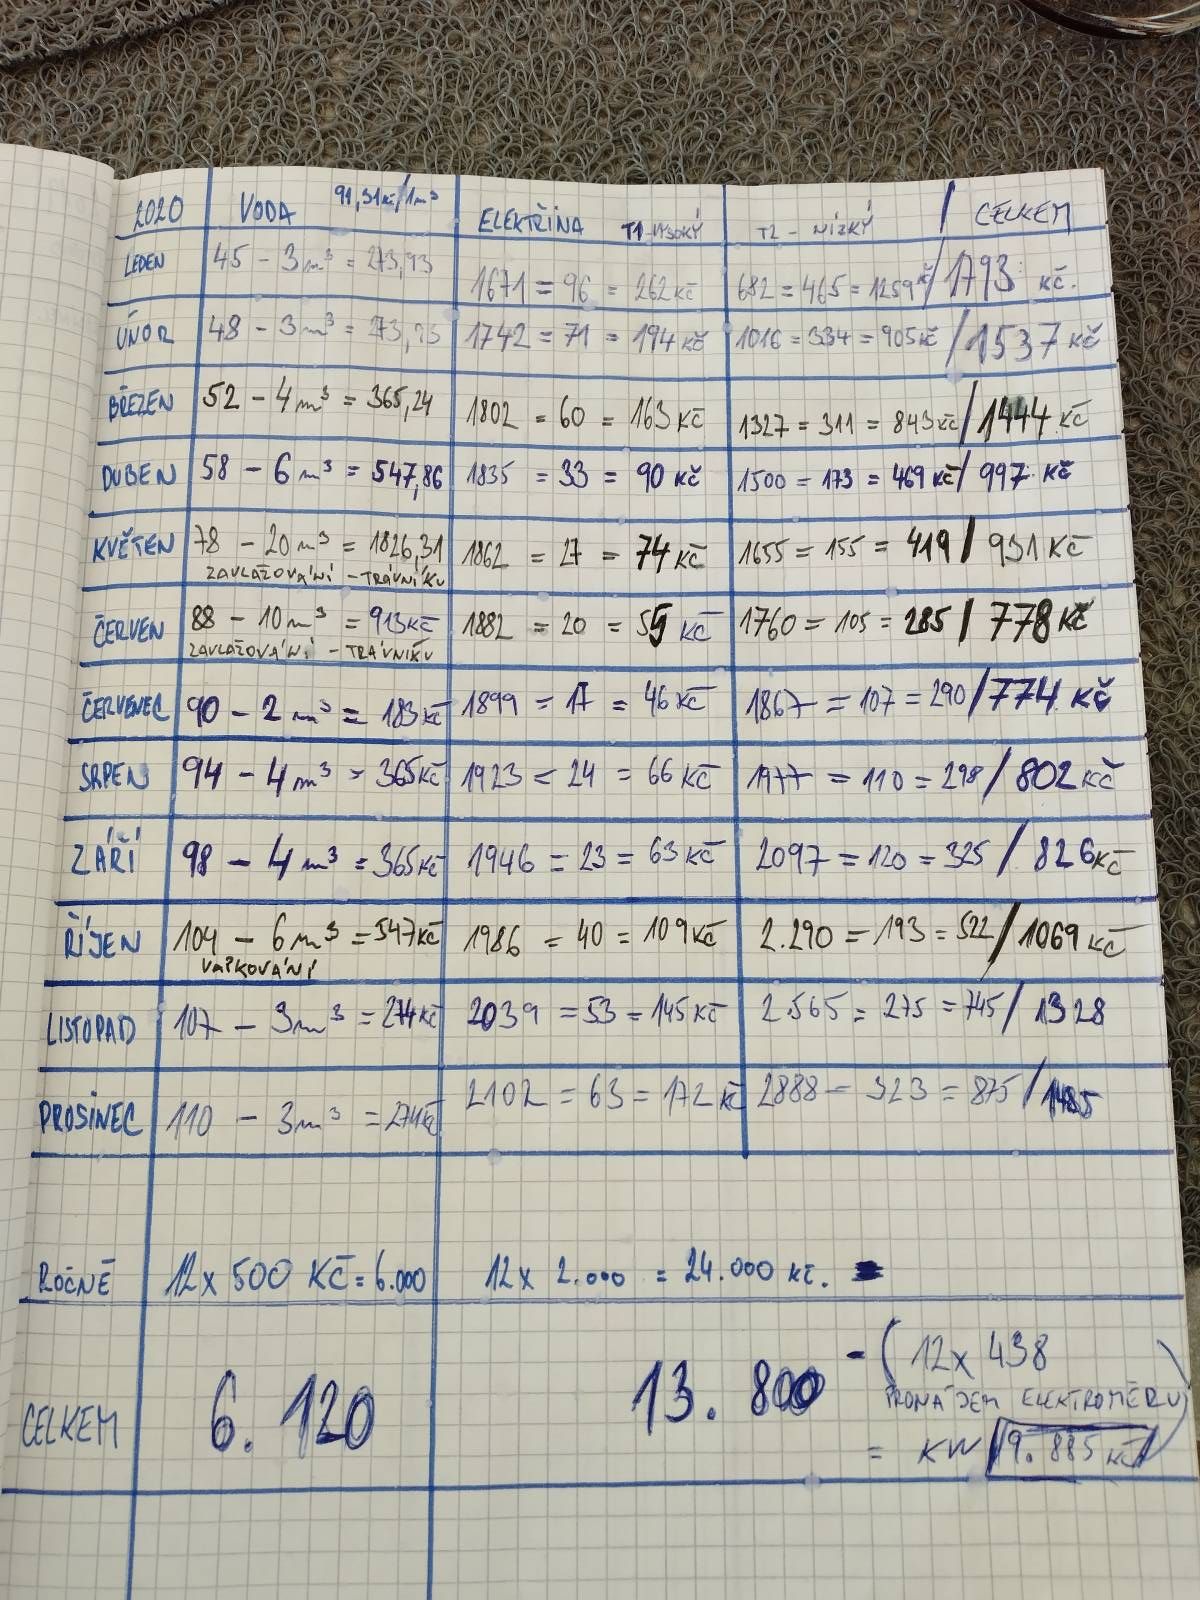 2020 VODA 91,31Kč/1m³ ELEKTŘINA T1-VYSOKÝ T2 - NÍZKÝ / CELKEM
LEDEN 45 - 3m³ = 273,93 1671 = 96 = 262Kč 682 = 465 = 1259Kč / 1793 Kč.
ÚNOR 48 - 3m³ = 273,93 1742 = 71 = 194Kč 1016 = 334 = 905Kč / 1537 Kč
BŘEZEN 52 - 4m³ = 365,24 1802 = 60 = 163Kč 1327 = 311 = 843Kč / 1444 Kč
DUBEN 58 - 6m³ = 547,86 1835 = 33 = 90 Kč 1500 = 173 = 469 Kč / 997 Kč
KVĚTEN 78 - 20m³ = 1826,31 1862 = 27 = 74Kč 1655 = 155 = 419 / 931 Kč
ZAVLAŽOVÁNÍ - TRÁVNÍKU
ČERVEN 88 - 10m³ = 913Kč 1882 = 20 = 55 Kč 1760 = 105 = 285 / 778Kč
ZAVLAŽOVÁNÍ - TRÁVNÍKU
ČERVENEC 90 - 2m³ = 183Kč 1899 = 17 = 46Kč 1867 = 107 = 290 / 774 Kč
SRPEN 94 - 4m³ = 365Kč 1923 = 24 = 66 Kč 1977 = 110 = 298 / 802Kč
ZÁŘÍ 98 - 4m³ = 365Kč 1946 = 23 = 63Kč 2097 = 120 = 325 / 826Kč
ŘÍJEN 104 - 6m³ = 547Kč 1986 = 40 = 109Kč 2.290 = 193 = 522 / 1069 Kč
LISTOPAD 107 - 3m³ = 274Kč 2039 = 53 = 145Kč 2.565 = 275 = 745 / 1328
PROSINEC 110 - 3m³ = 274Kč 2102 = 63 = 172Kč 2888 - 323 = 875 / 1485
ROČNĚ 12x 500 KČ = 6.000 12x 2.000 = 24.000 Kč.
CELKEM 6.120 13.800 - (12x 438
PRONÁJEM ELEKTROMĚRU)
= KW 9.885 Kč